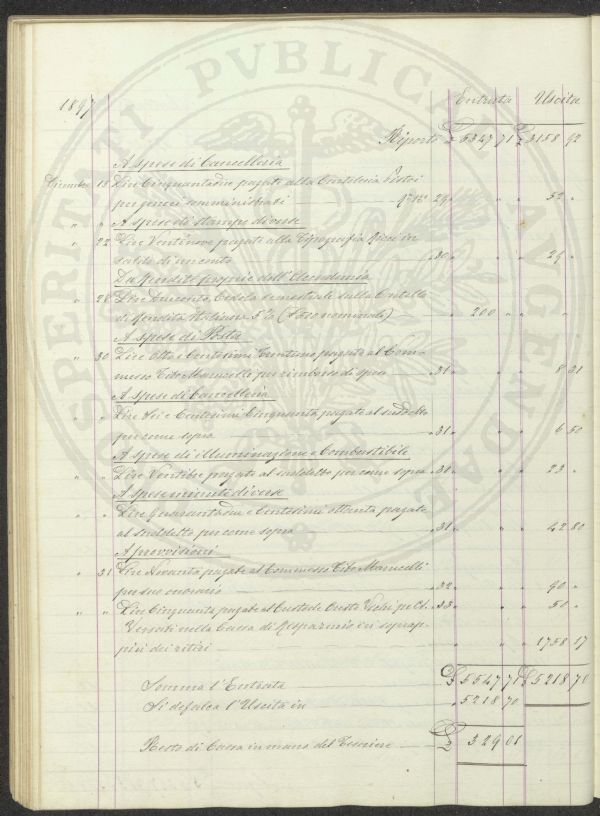 1897 Entrata Uscita
Riporto £ 5347 71 £ 3158 92
A spese di Cancelleria
Dicembre 13 Lire Cinquantadue pagate alla Cartoleria
per generi somministrati N.ro 29 " " " 52 "
" " A spese di stampe diverse
" 22 Lire Ventinove pagate alla Tipografia Ricci in
saldo di un conto " 30 " " " 29 "
Da Rendite proprie dell'Accademia
" 28 Lire Duecento, Cedola semestrale sulla Cartella
di Rendita Italiana 5% (Lire nominali) " 200 " " "
A spese di Posta
" 30 Lire Otto e Centesimi Trentuno pagate al Com-
messo Tito Marucelli per rimborso di spese " 31 " " " 8 31
A spese di Cancelleria
" " Lire Sei e Centesimi Cinquanta pagate al suddetto
per come sopra " 31 " " " 6 50
A spese di illuminazione e Combustibile
" " Lire Ventitre pagate al suddetto per come sopra " 31 " " " 23 "
A spese minute diverse
" " Lire Quarantadue e Centesimi ottanta pagate
al suddetto per come sopra " 31 " " " 42 80
A provvisioni
" 31 Lire Novanta pagate al Commesso Tito Marucelli
per suo onorario " 32 " " " 90 "
" " Lire Cinquanta pagate al Custode Oreste " 33 " " " 50 "
Versati nella Cassa di Risparmio
dei ritiri " " " 1758 17
Somma l'Entrata £ 5547 71 £ 5218 70
Si defalca l'Uscita in " 5218 70
Resto di Cassa in mano del Tesoriere £ 329 01
PROSPERITATI PVBLICAE AVGENDAE